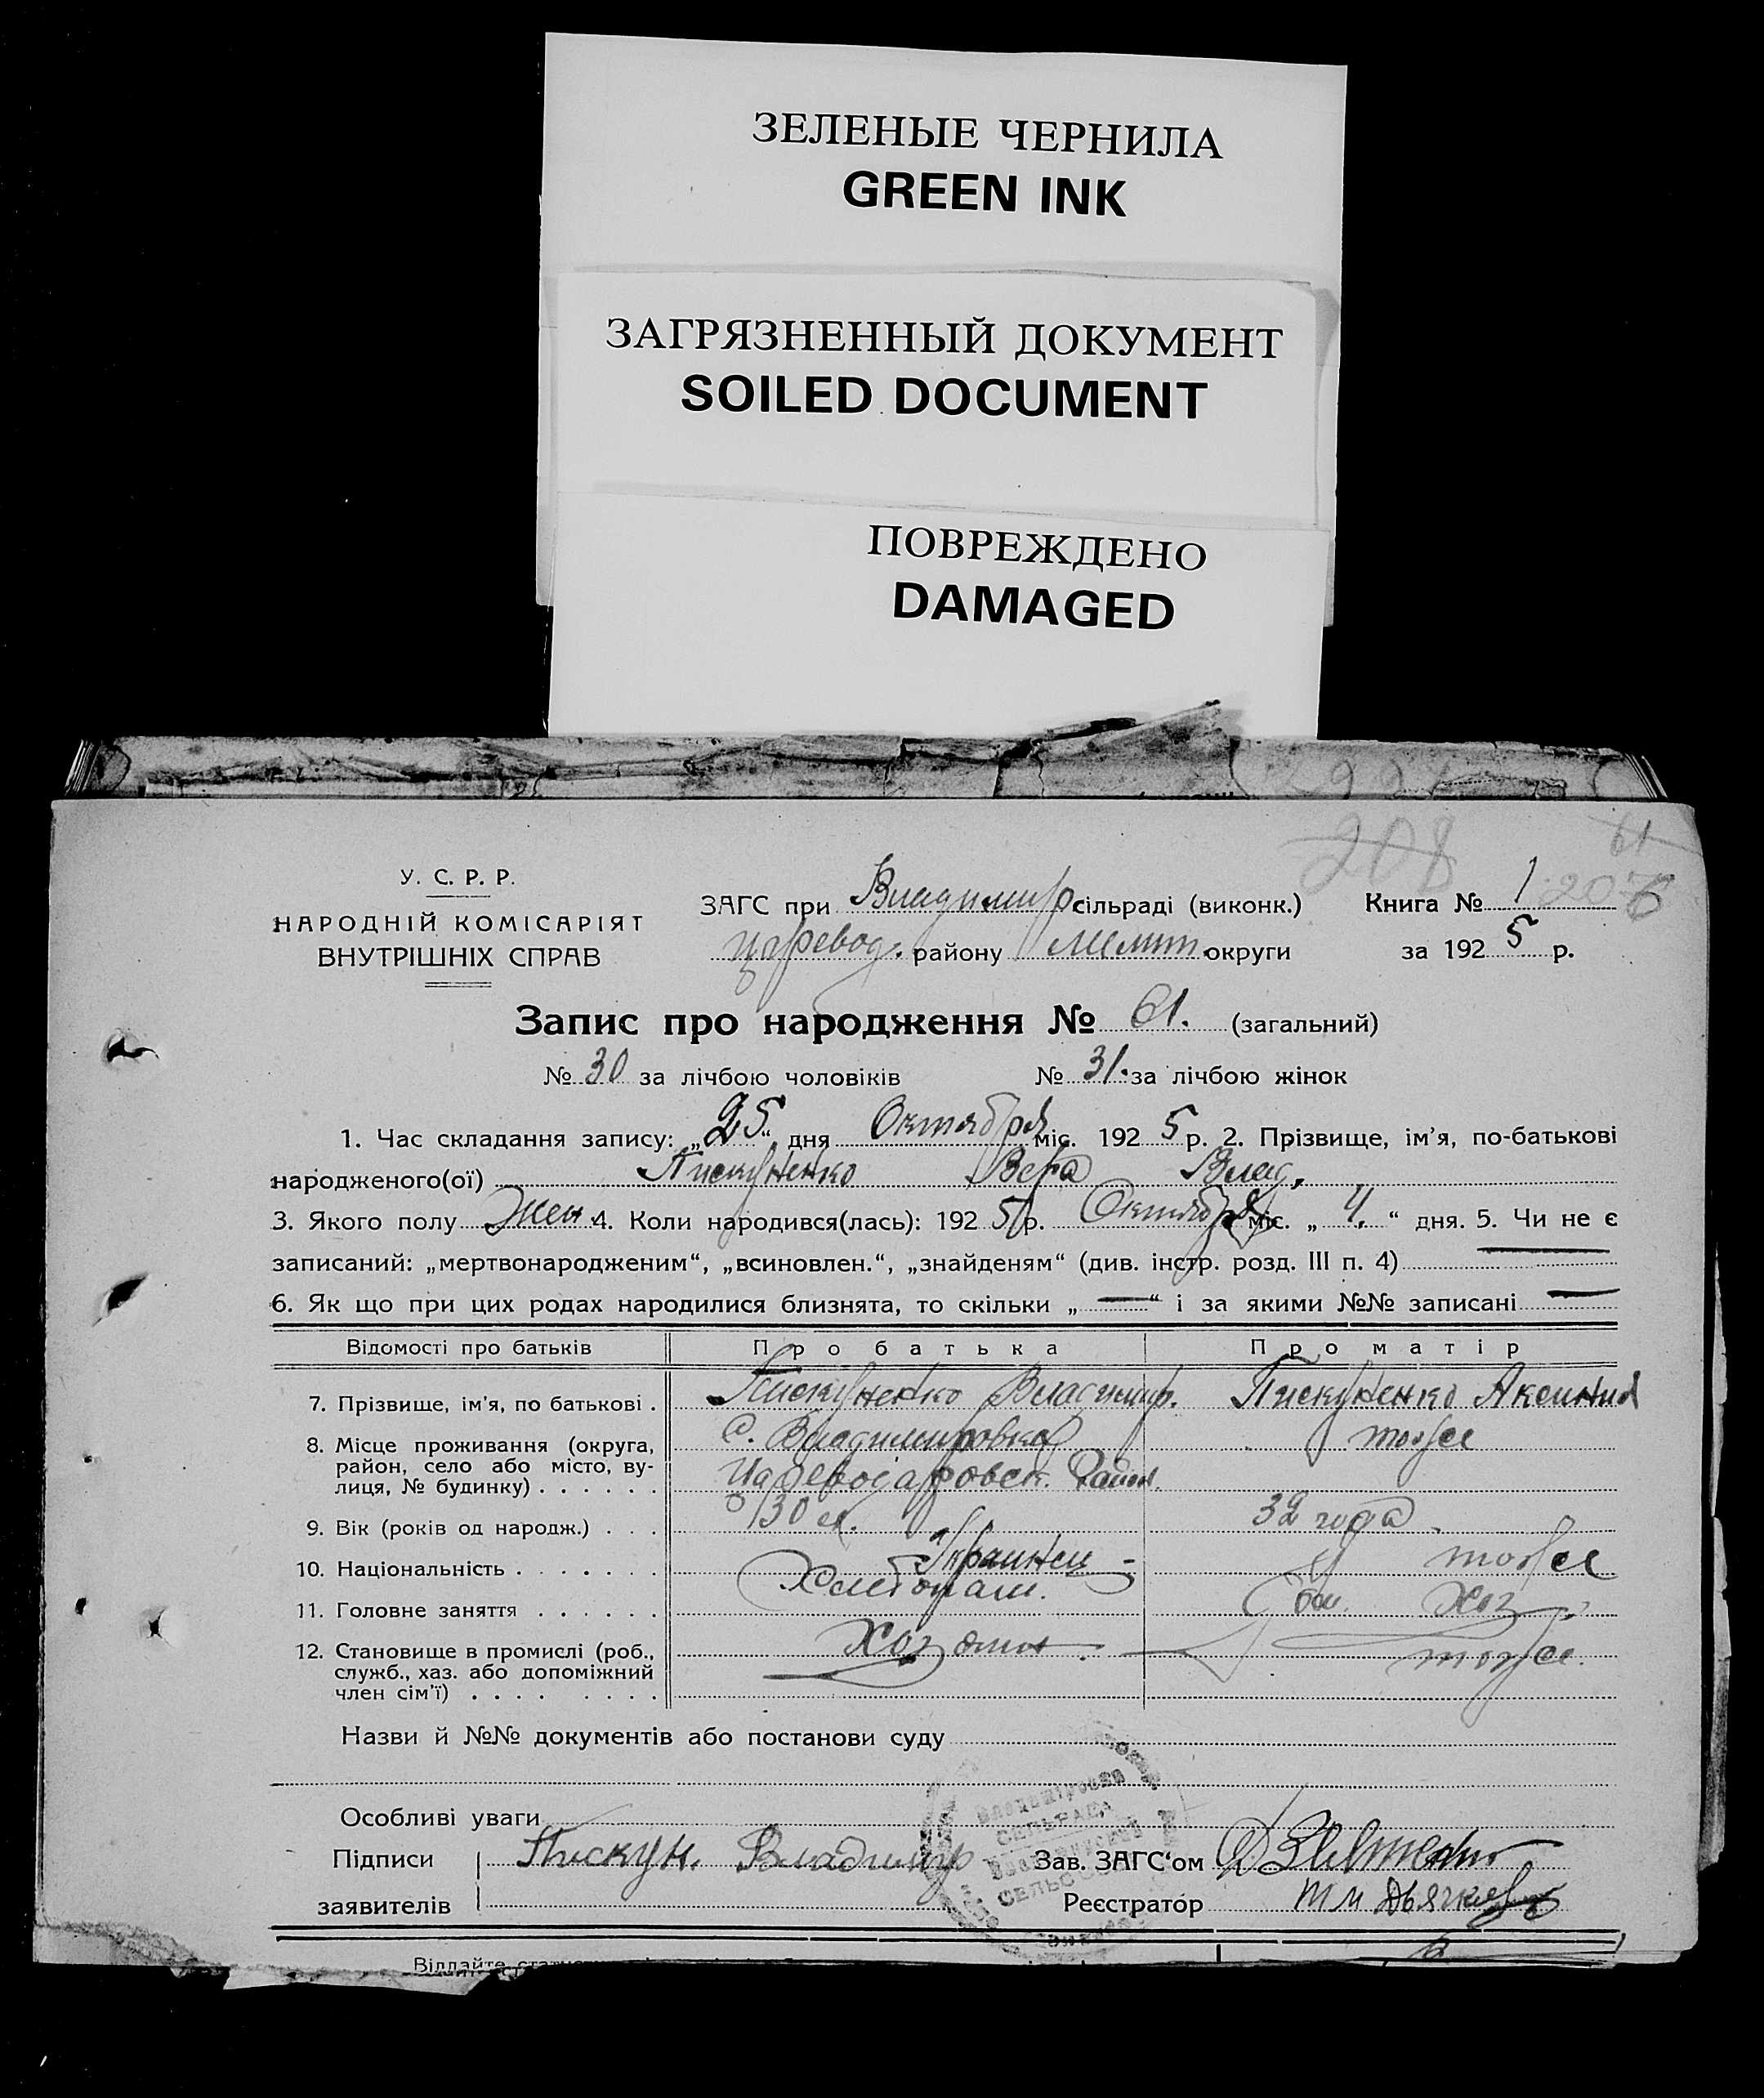 ЗЕЛЕНЫЕ ЧЕРНИЛА
GREEN INK
ЗАГРЯЗНЕННЫЙ ДОКУМЕНТ
SOILED DOCUMENT
ПОВРЕЖДЕНО
DAMAGED
208 61
У. С. Р. Р.
НАРОДНІЙ КОМІСАРІЯТ
ВНУТРІШНІХ СПРАВ
ЗАГС при Владимир. сільраді (виконк.) Книга № 1
Царевод. району Мелит. округи за 1925 р.
Запис про народження № 61. (загальний)
№ 30 за лічбою чоловіків № 31. за лічбою жінок
1. Час складання запису: „25“ дня Октября міс. 1925 р. 2. Прізвище, ім'я, по-батькові
народженого(ої) Пискуненко Вера Влад.
3. Якого полу Жен. 4. Коли народився(лась): 1925 р. Октября міс. „4.“ дня. 5. Чи не є
записаний: „мертвонародженим“, „всиновлен.“, „знайденям“ (див. інстр. розд. III п. 4) —
6. Як що при цих родах народилися близнята, то скільки „—“ і за якими №№ записані —
Відомості про батьків Про батька Про матір
7. Прізвище, ім'я, по батькові . Пискуненко Владимир. Пискуненко Аксиния
8. Місце проживання (округа, С. Владимировка тоже
район, село або місто, ву-
лиця, № будинку) . . . . . . Царевод Район.
9. Вік (років од народж.) . . . 30 л. 32 года
10. Національність . . . . . . . Украинец тоже
11. Головне заняття . . . . . . Хлебопаш. Дом. Хоз.
12. Становище в промислі (роб., Хозяин тоже.
служб., хаз. або допоміжний
член сім'ї) . . . . . . . .
Назви й №№ документів або постанови суду
Особливі уваги
СЕЛЬРАДА
Підписи Пискун. Владимир Зав. ЗАГС'ом
заявителів Реєстратор